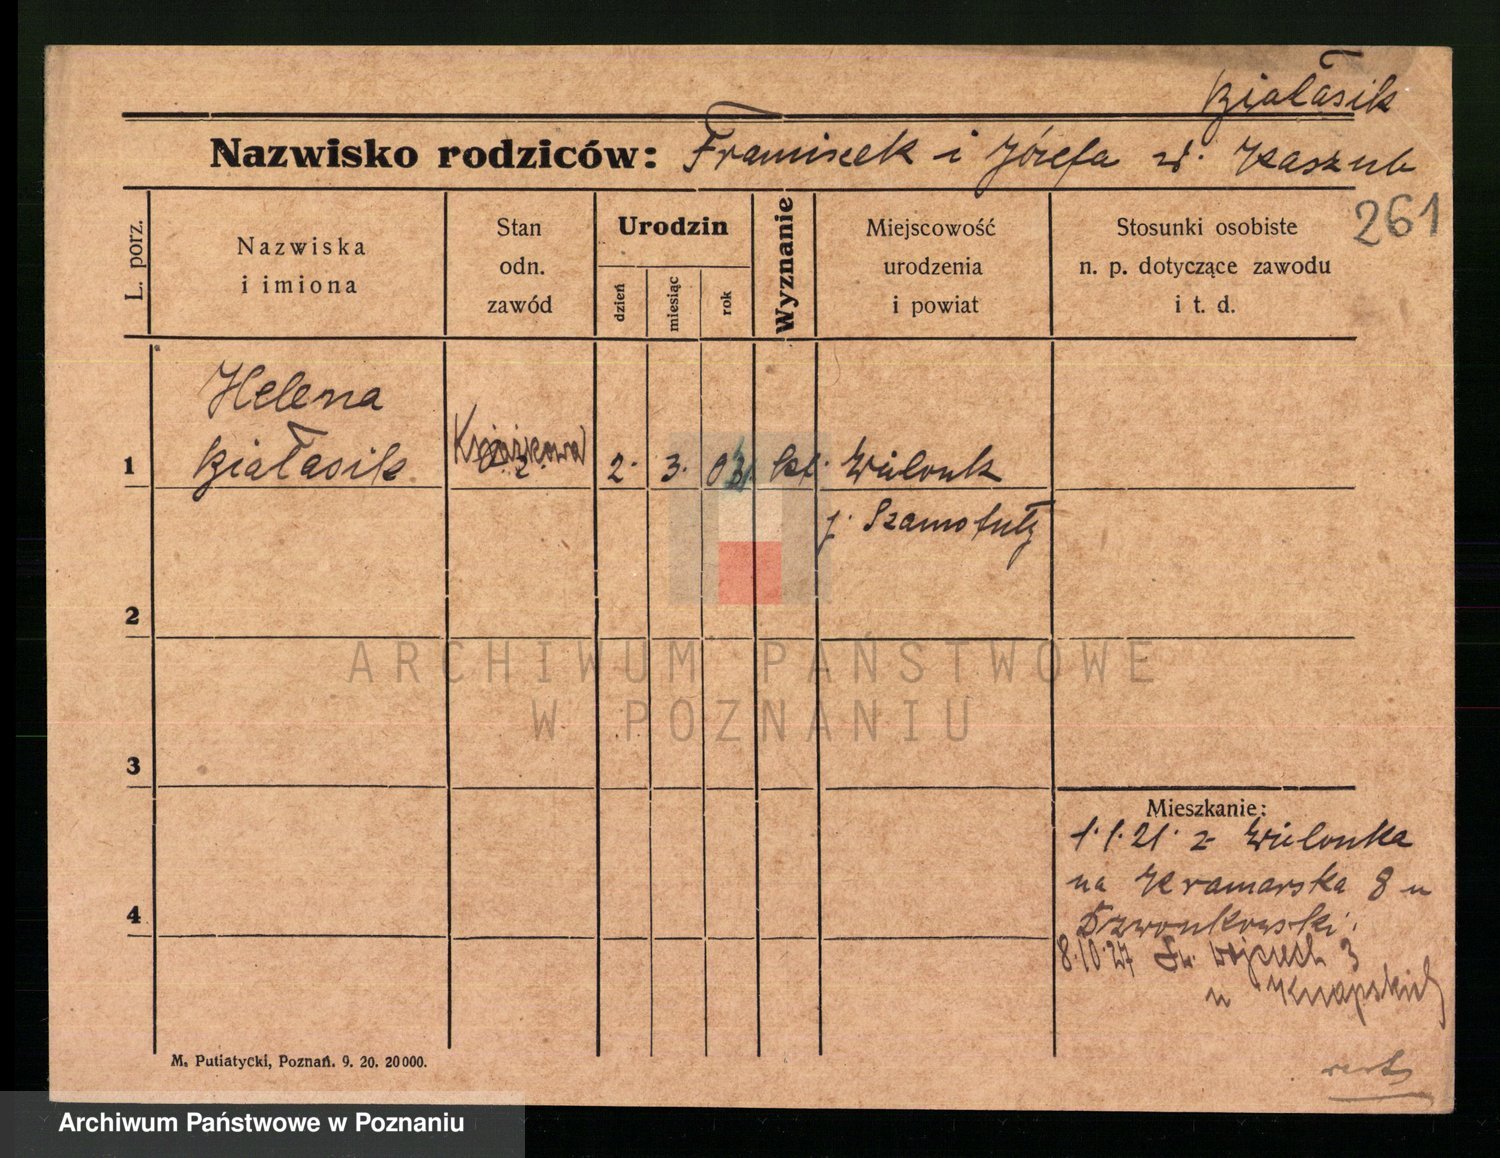 Białasik
Nazwisko rodziców: Franciszek i Józefa z d. Kaszub
261
L. porz.
Nazwiska
i imiona
Stan
odn.
zawód
Urodzin
dzień
miesiąc
rok
Wyznanie
Miejscowość
urodzenia
i powiat
Stosunki osobiste
n. p. dotyczące zawodu
i t. d.
Helena
1 Białasik 2. 3. kt. Wielonk
p. Szamotuły
2
3
4
Mieszkanie:
1.1.21. z Wielonka
na Kramarska 8 u
Dzwonkowski.
8.10.27 Św. Wojciech 3
u Knapskich
M. Putiatycki, Poznań. 9. 20. 20000.
ARCHIWUM PAŃSTWOWE
W POZNANIU
Archiwum Państwowe w Poznaniu